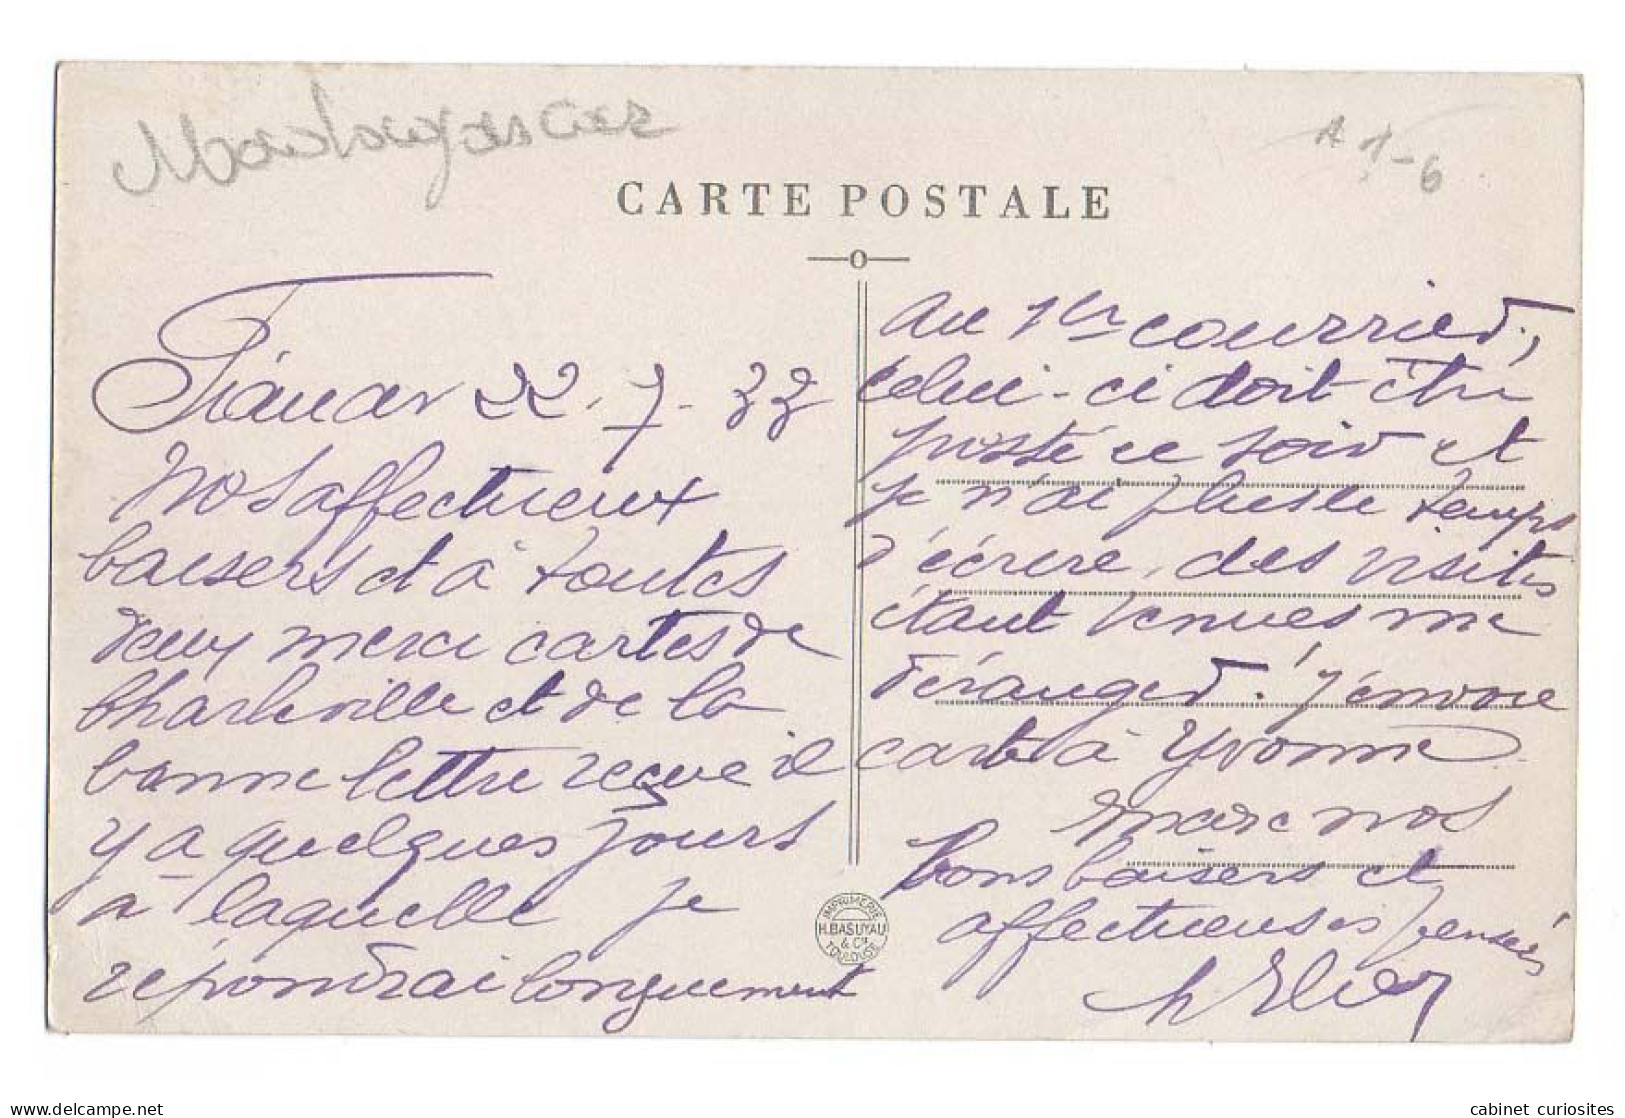 Madagascar
A 1-6
CARTE POSTALE
Fianar 22-7-33
Nos affectueux
baisers et à toutes
deux merci cartes de
Charleville et de la
bonne lettre reçue il
y a quelques jours
à laquelle je
répondrai longuement
au 1er courrier,
celui-ci doit être
posté ce soir et
je n'ai plus le temps
d'écrire, des visites
étant venues me
déranger. J'envoie
carte à Yvonne
Marc nos
bons baisers et
affectueuses pensées
IMPRIMERIE
H. BASUYAU
& Cie
TOULOUSE
cabinet_curiosites